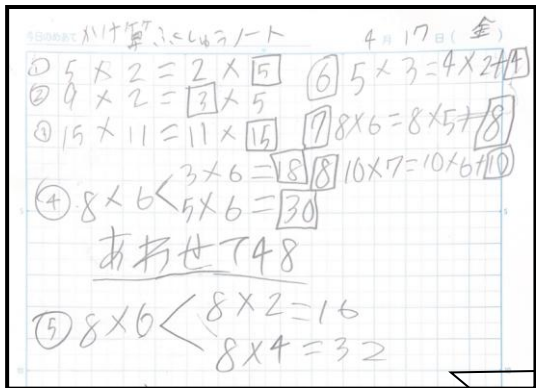 今日のめあて かけ算ふくしゅうノート 4月17日(金)
① 5×2=2×5
② 9×2=3×5
③ 15×11=11×15
④ 8×6<3×6=18
5×6=30
あわせて48
⑤ 8×6<8×2=16
8×4=32
⑥ 5×3=4×2+4
⑦ 8×6=8×5+8
⑧ 10×7=10×6+10